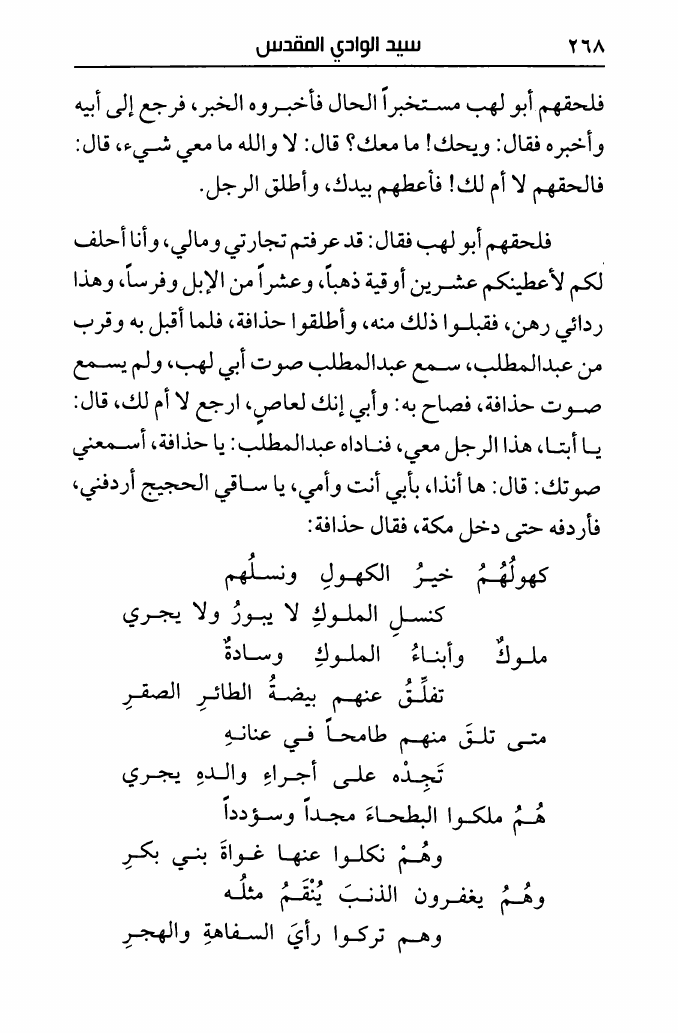 ٢٦٨ سيد الوادي المقدس
فلحقهم أبو لهب مستخبراً الحال فأخبروه الخبر، فرجع إلى أبيه
وأخبره فقال: ويحك! ما معك؟ قال: لا والله ما معي شيء، قال:
فالحقهم لا أم لك! فأعطهم بيدك، وأطلق الرجل.
فلحقهم أبو لهب فقال: قد عرفتم تجارتي ومالي، وأنا أحلف
لكم لأعطينكم عشرين أوقية ذهباً، وعشراً من الإبل وفرساً، وهذا
ردائي رهن، فقبلوا ذلك منه، وأطلقوا حذافة، فلما أقبل به وقرب
من عبدالمطلب، سمع عبدالمطلب صوت أبي لهب، ولم يسمع
صوت حذافة، فصاح به: وأبي إنك لعاصٍ، ارجع لا أم لك، قال:
يا أبتا، هذا الرجل معي، فناداه عبدالمطلب: يا حذافة، أسمعني
صوتك: قال: ها أنذا، بأبي أنت وأمي، يا ساقي الحجيج أردفني،
فأردفه حتى دخل مكة، فقال حذافة:
كهولُهُمُ خيرُ الكهولِ ونسلُهم
كنسلِ الملوكِ لا يبورُ ولا يجري
ملوكٌ وأبناءُ الملوكِ وسادةٌ
تفلِّقُ عنهم بيضةُ الطائرِ الصقرِ
متى تلقَ منهم طامحاً في عنانهِ
تَجِدْه على أجراءِ والدهِ يجري
هُمُ ملكوا البطحاءَ مجداً وسؤدداً
وهُمْ نكلوا عنها غواةَ بني بكرِ
وهُمُ يغفرون الذنبَ يُنْقَمُ مثلُه
وهم تركوا رأيَ السفاهةِ والهجرِ